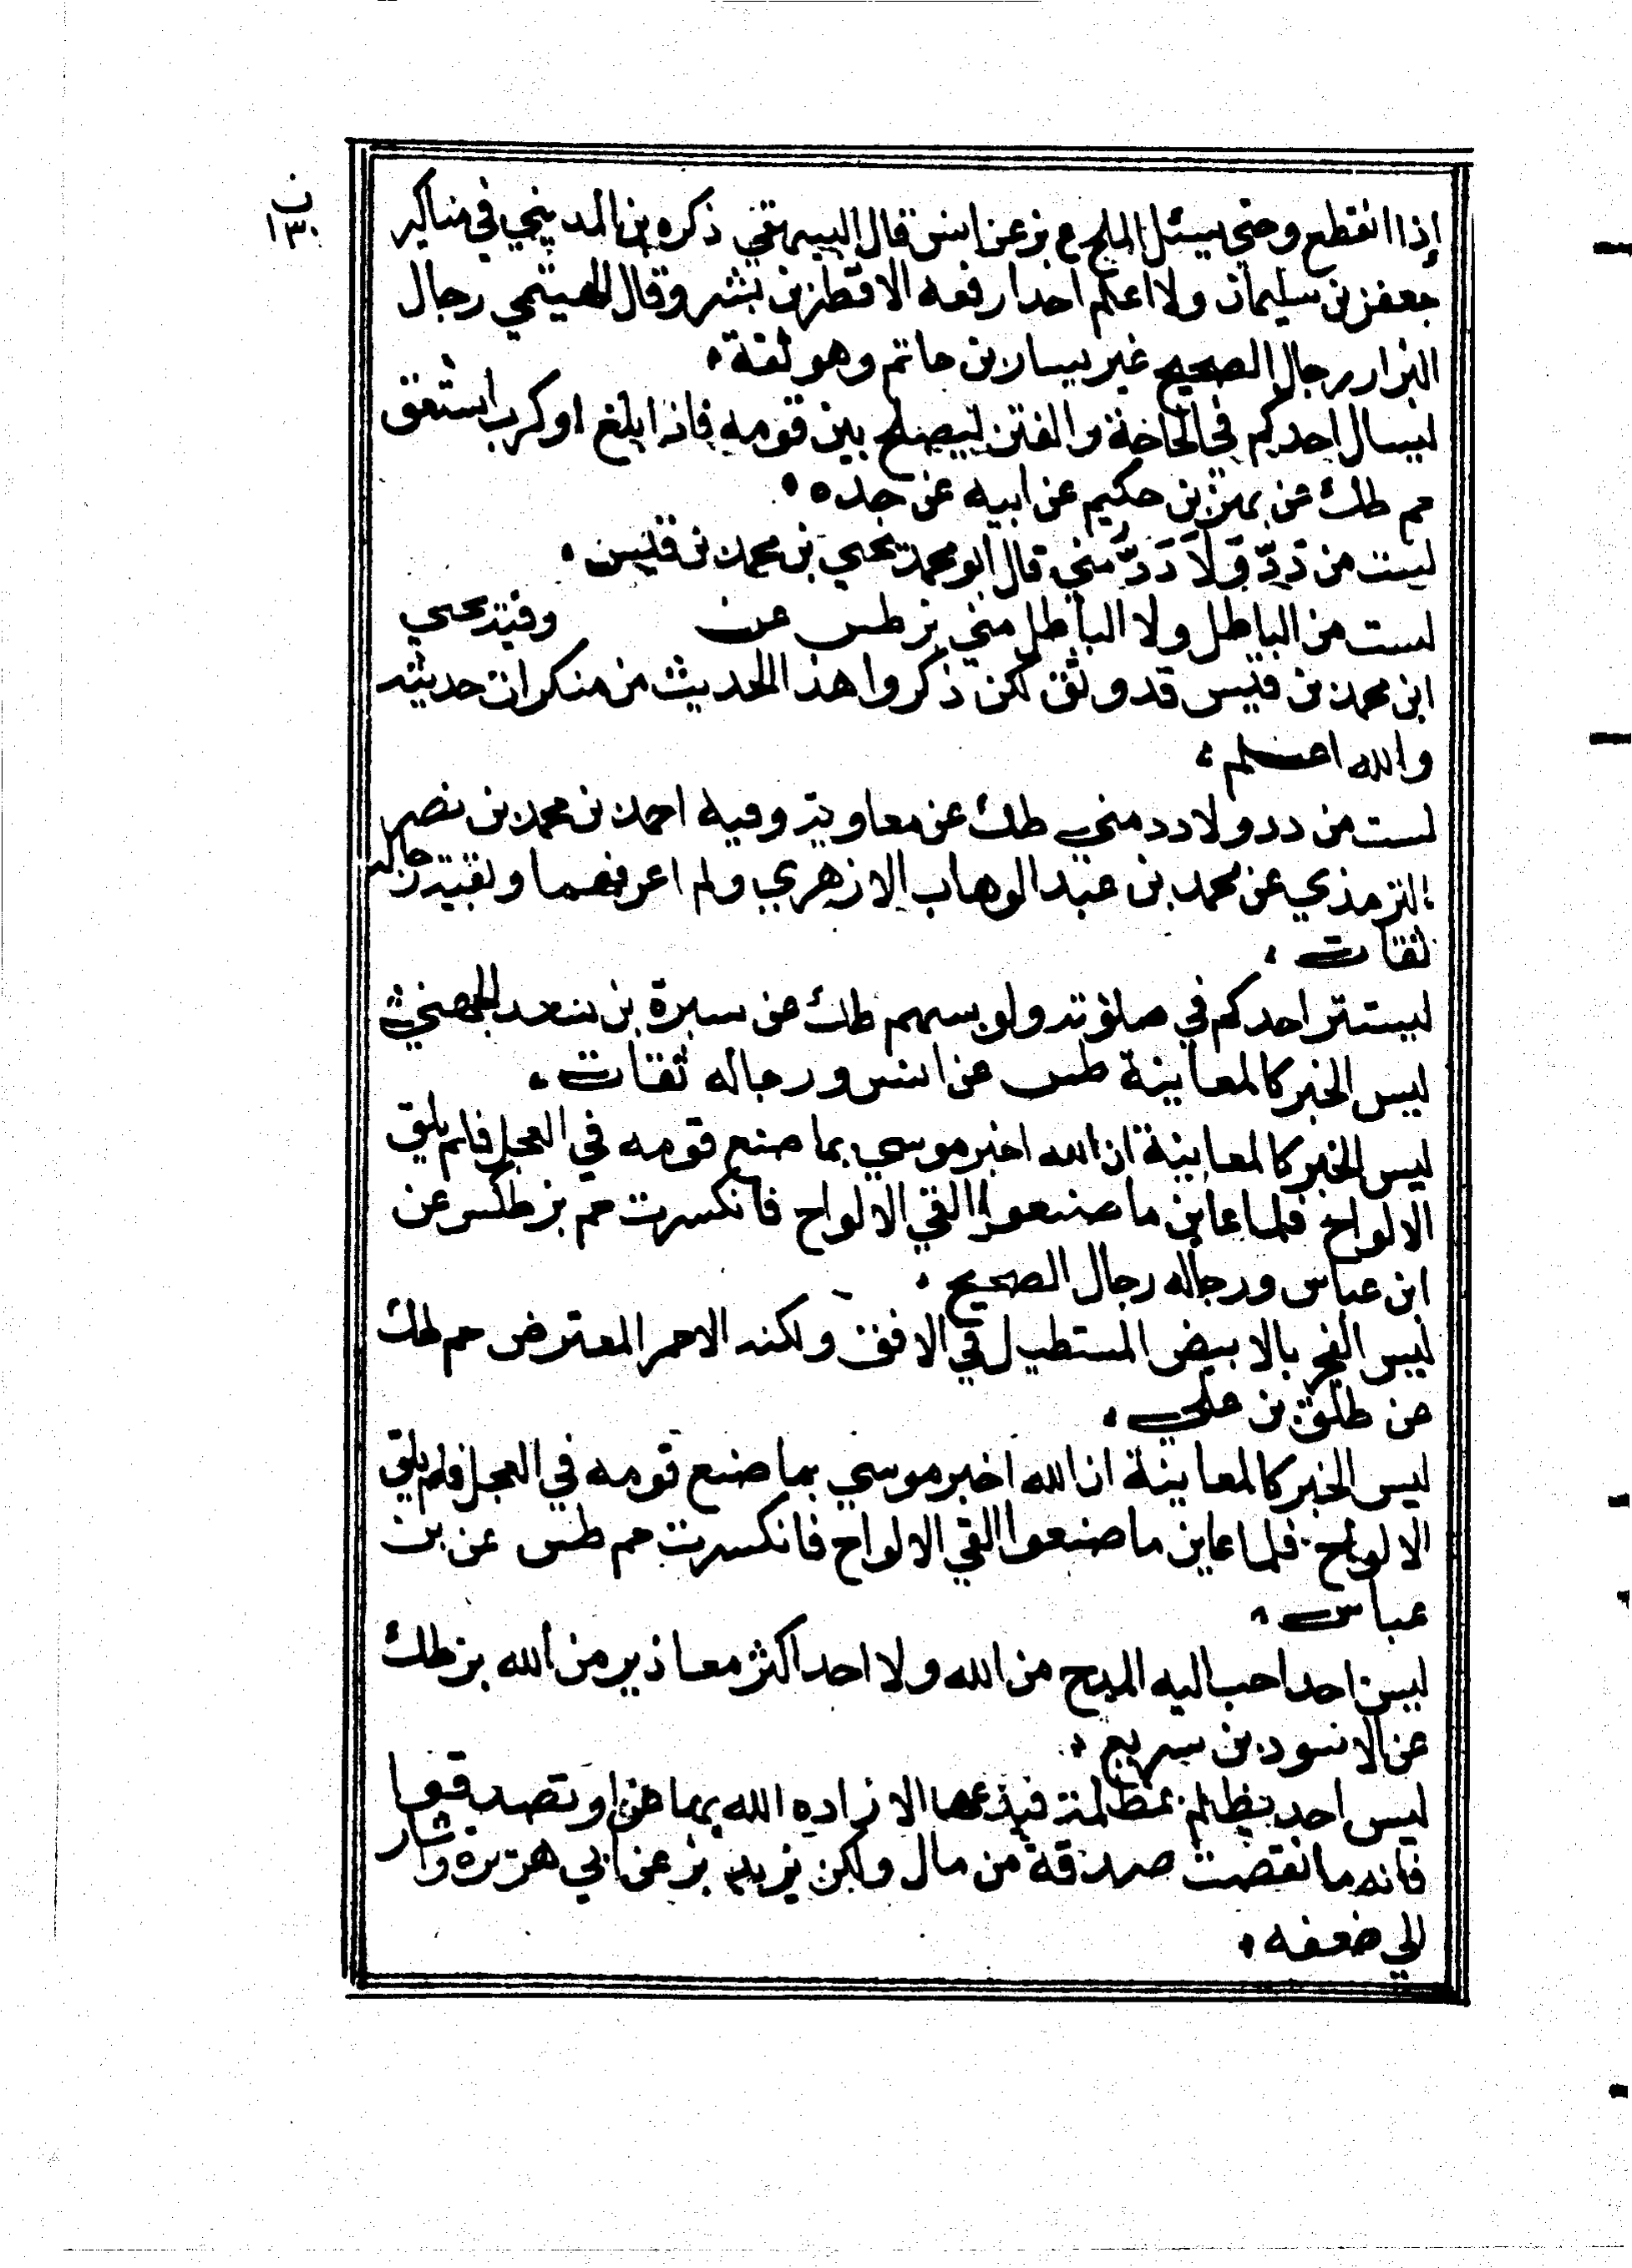 ن
١٣٠
إذا انقطع وحتى يسئل الملح ع بز عن انس قال البيهقي ذكره بن المديني في مناكير
جعفر بن سليمان ولا اعلم احدا رفعه الا قطن بن بشر وقال الهيثمي رجال
البزار رجال الصحيح غير سيار بن حاتم وهو ثقة
ليسال احدكم في الحاجة والفتن ليصلح بين قومه فاذا بلغ او كرب استعف
حم طك عن بهز بن حكيم عن ابيه عن جده
لست من دَدٍّ وَلَا دَدٌّ مني قال ابو محمد يحيي بن محمد بن قيس
لست من الباطل ولا الباطل مني بز طس عن وفيه يحيي
ابن محمد بن قيس قد وثق لكن ذكروا هذا الحديث من منكرات حديثه
والله اعلم
لست من دد ولا دد مني طك عن معاوية وفيه احمد بن محمد بن نصر
الترمذي عن محمد بن عبد الوهاب الازهري ولم اعرفهما وبقية رجاله
ثقات
ليستتر احدكم في صلوته ولو بسهم طك عن سبرة بن معبد الجهني
ليس الخبر كالمعاينة طس عن انس ورجاله ثقات
ليس الخبر كالمعاينة ان الله اخبر موسي بما صنع قومه في العجل فلم يلق
الالواح فلما عاين ما صنعوا القي الالواح فانكسرت حم بز طكس عن
ابن عباس ورجاله رجال الصحيح
ليس الفجر بالابيض المستطيل في الافق ولكنه الاحمر المعترض حم طك
عن طلق بن علي
ليس الخبر كالمعاينة ان الله اخبر موسي بما صنع قومه في العجل فلم يلق
الالواح فلما عاين ما صنعوا القي الالواح فانكسرت حم طس عن بن
عباس
ليس احد احب اليه المدح من الله ولا احد اكثر معاذير من الله بز طك
عن الاسود بن سريع
ليس احد يظلم بمظلمة فيدعها الا زاده الله بها عزا وتصدقوا
فانه ما نقصت صدقة من مال ولكن يزيد بز عن ابي هريرة واشار
الي ضعفه